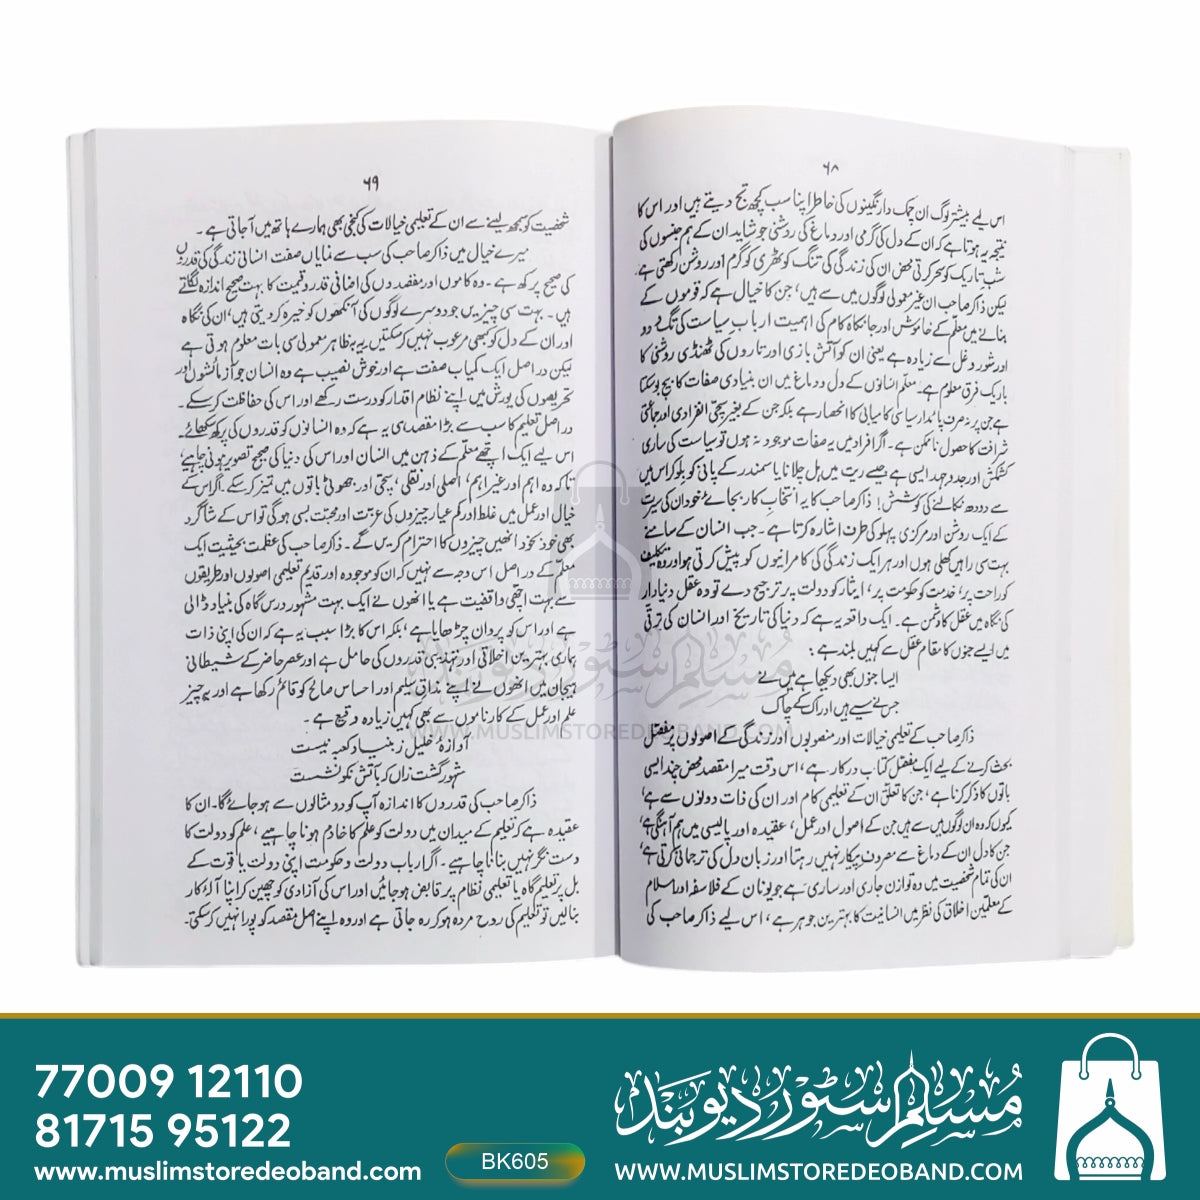 ۶۸
اس لیے بیشتر لوگ ان چمک دار نگینوں کی خاطر اپنا سب کچھ تج دیتے ہیں اور اس کا
نتیجہ یہ ہوتا ہے کہ ان کے دل کی گرمی اور دماغ کی روشنی جو شاید ان کے ہم جنسوں کی
شب تاریک کو سحر کرتی محض ان کی زندگی کی تنگ کوٹھری کو گرم اور روشن رکھتی ہے
لیکن ذاکر صاحب ان غیر معمولی لوگوں میں سے ہیں، جن کا خیال ہے کہ قوموں کے
بنانے میں معلم کے خاموش اور جانکاہ کام کی اہمیت ارباب سیاست کی تگ و دو
اور شور و غل سے زیادہ ہے یعنی ان کو آتش بازی اور تاروں کی ٹھنڈی روشنی کا
باریک فرق معلوم ہے۔ معلم انسانوں کے دل و دماغ میں ان بنیادی صفات کا بیج بو سکتا
ہے جن پر نہ صرف پائدار سیاسی کامیابی کا انحصار ہے بلکہ جن کے بغیر سچی انفرادی اور جماعتی
شرافت کا حصول ناممکن ہے۔ اگر افراد میں یہ صفات موجود نہ ہوں تو سیاست کی ساری
کشمکش اور جدوجہد ایسی ہے جیسے ریت میں ہل چلانا یا سمندر کے پانی کو بلو کر اس میں
سے دودھ نکالنے کی کوشش! ذاکر صاحب کا یہ انتخاب کار بجائے خود ان کی سیرت
کے ایک روشن اور مرکزی پہلو کی طرف اشارہ کرتا ہے۔ جب انسان کے سامنے
بہت سی راہیں کھلی ہوں اور ہر ایک زندگی کی کامرانیوں کو پیش کرتی ہو اور وہ تکلیف
کو راحت پر، خدمت کو حکومت پر، ایثار کو دولت پر ترجیح دے تو وہ عقل دنیا دار
کی نگاہ میں عقل کا دشمن ہے۔ ایک واقعہ یہ ہے کہ دنیا کی تاریخ اور انسان کی ترقی
میں ایسے جنوں کا مقام عقل سے کہیں بلند ہے:
ایسا جنوں بھی دیکھا ہے میں نے
جس نے سیے ہیں ادراک کے چاک
ذاکر صاحب کے تعلیمی خیالات اور منصوبوں اور زندگی کے اصولوں پر مفصل
بحث کرنے کے لیے ایک مفصل کتاب درکار ہے، اس وقت میرا مقصد محض چند ایسی
باتوں کا ذکر کرنا ہے، جن کا تعلق ان کے تعلیمی کام اور ان کی ذات دونوں سے ہے،
کیوں کہ وہ ان لوگوں میں سے ہیں جن کے اصول اور عمل، عقیدہ اور پالیسی میں ہم آہنگی ہے،
جن کا دل ان کے دماغ سے مصروف پیکار نہیں رہتا اور زبان دل کی ترجمانی کرتی ہے،
ان کی تمام شخصیت میں وہ توازن جاری اور ساری ہے جو یونان کے فلاسفہ اور اسلام
کے معلمین اخلاق کی نظر میں انسانیت کا بہترین جوہر ہے، اس لیے ذاکر صاحب کی
۶۹
شخصیت کو سمجھ لینے سے ان کے تعلیمی خیالات کی کنجی بھی ہمارے ہاتھ میں آجاتی ہے۔
میرے خیال میں ذاکر صاحب کی سب سے نمایاں صفت انسانی زندگی کی قدروں
کی صحیح پرکھ ہے۔ وہ کاموں اور مقصدوں کی اضافی قدر و قیمت کا بہت صحیح اندازہ لگاتے
ہیں۔ بہت سی چیزیں جو دوسرے لوگوں کی آنکھوں کو خیرہ کر دیتی ہیں، ان کی نگاہ
اور ان کے دل کو کبھی مرعوب نہیں کر سکتیں یہ بہ ظاہر معمولی سی بات معلوم ہوتی ہے
لیکن در اصل ایک کمیاب صفت ہے اور خوش نصیب ہے وہ انسان جو آزمائشوں اور
تحریصوں کی یورش میں اپنے نظام اقدار کو درست رکھے اور اس کی حفاظت کر سکے۔
در اصل تعلیم کا سب سے بڑا مقصد ہی یہ ہے کہ وہ انسانوں کو قدروں کی پرکھ سکھائے۔
اس لیے ایک اچھے معلم کے ذہن میں انسان اور اس کی دنیا کی صحیح تصویر ہونی چاہیے،
تاکہ وہ اہم اور غیر اہم، اصلی اور نقلی، سچی اور جھوٹی باتوں میں تمیز کر سکے۔ اگر اس کے
خیال اور عمل میں غلط اور کم عیار چیزوں کی عزت اور محبت بسی ہو گی تو اس کے شاگرد
بھی خود بخود انھیں چیزوں کا احترام کریں گے۔ ذاکر صاحب کی عظمت بحیثیت ایک
معلم کے در اصل اس وجہ سے نہیں کہ ان کو موجودہ اور قدیم تعلیمی اصولوں اور طریقوں
سے بہت اچھی واقفیت ہے یا انھوں نے ایک بہت مشہور درس گاہ کی بنیاد ڈالی
ہے اور اس کو پروان چڑھایا ہے، بلکہ اس کا بڑا سبب یہ ہے کہ ان کی اپنی ذات
ہماری بہترین اخلاقی اور تہذیبی قدروں کی حامل ہے اور عصر حاضر کے شیطانی
ہیجان میں انھوں نے اپنے مذاق سلیم اور احساس صالح کو قائم رکھا ہے اور یہ چیز
علم اور عمل کے کارناموں سے بھی کہیں زیادہ وقیع ہے۔
آوازۂ خلیل ز بنیاد کعبہ نیست
مشہور گشت زاں کہ بآتش نکو نشست
ذاکر صاحب کی قدروں کا اندازہ آپ کو دو مثالوں سے ہو جائے گا۔ ان کا
عقیدہ ہے کہ تعلیم کے میدان میں دولت کو علم کا خادم ہونا چاہیے، علم کو دولت کا
دست نگر نہیں بنانا چاہیے۔ اگر ارباب دولت و حکومت اپنی دولت یا قوت کے
بل پر تعلیم گاہ یا تعلیمی نظام پر قابض ہو جائیں اور اس کی آزادی کو چھین کر اپنا آلۂ کار
بنالیں تو تعلیم کی روح مردہ ہو کر رہ جاتی ہے اور وہ اپنے اصل مقصد کو پورا نہیں کر سکتی۔
مسلم سٹور دیوبند
WWW.MUSLIMSTOREDEOBAND.COM
77009 12110
81715 95122
www.muslimstoredeoband.com
BK605
مسلم سٹور دیوبند
WWW.MUSLIMSTOREDEOBAND.COM